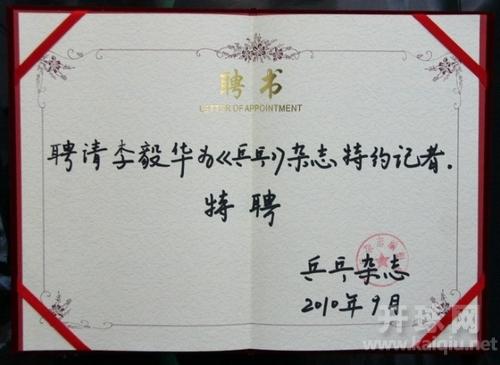 聘书
LETTER OF APPOINTMENT
聘请李毅华为《乒乓》杂志特约记者.
特聘
乒乓杂志
2010年9月
开球网
www.kaiqiu.net